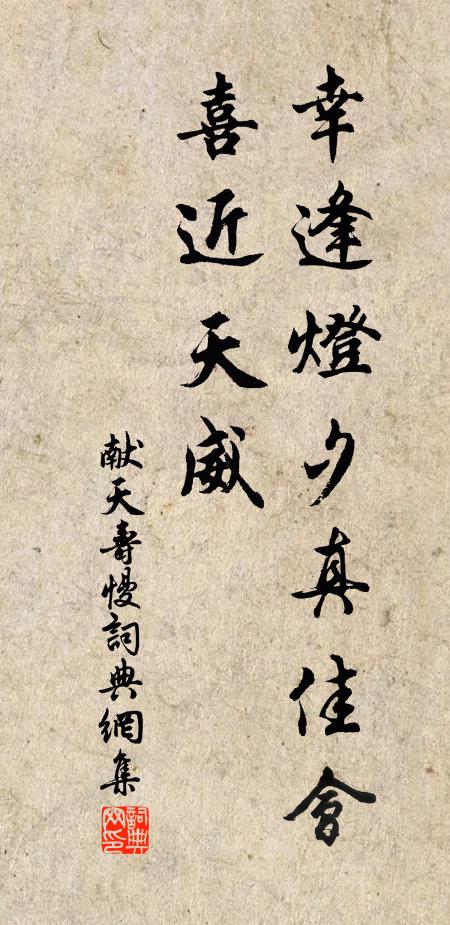 幸逢燈夕真佳會
喜近天威
献天壽慢詞典網集
詞典
网印